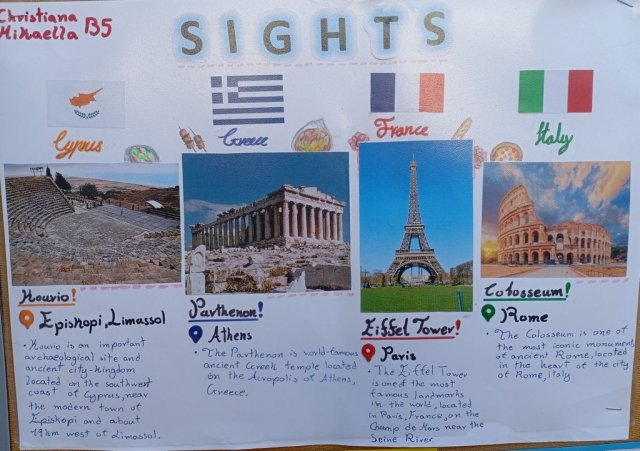 Christiana
Mikaella B5
SIGHTS
Cyprus
Greece
France
Italy
Kourio!
Episkopi, Limassol
• Kourio is an important
archaeological site and
ancient city-kingdom
located on the southwest
coast of Cyprus, near
the modern town of
Episkopi and about
19km west of Limassol.
Parthenon!
Athens
• The Parthenon is world-famous
ancient Greek temple located
on the Acropolis of Athens,
Greece.
Eiffel Tower!
Paris
• The Eiffel Tower
is one of the most
famous landmarks
in the world, located
in Paris, France, on the
Champ de Mars near the
Seine River
Colosseum!
Rome
• The Colosseum is one of
the most iconic monuments
of ancient Rome, located
in the heart of the city
of Rome, italy